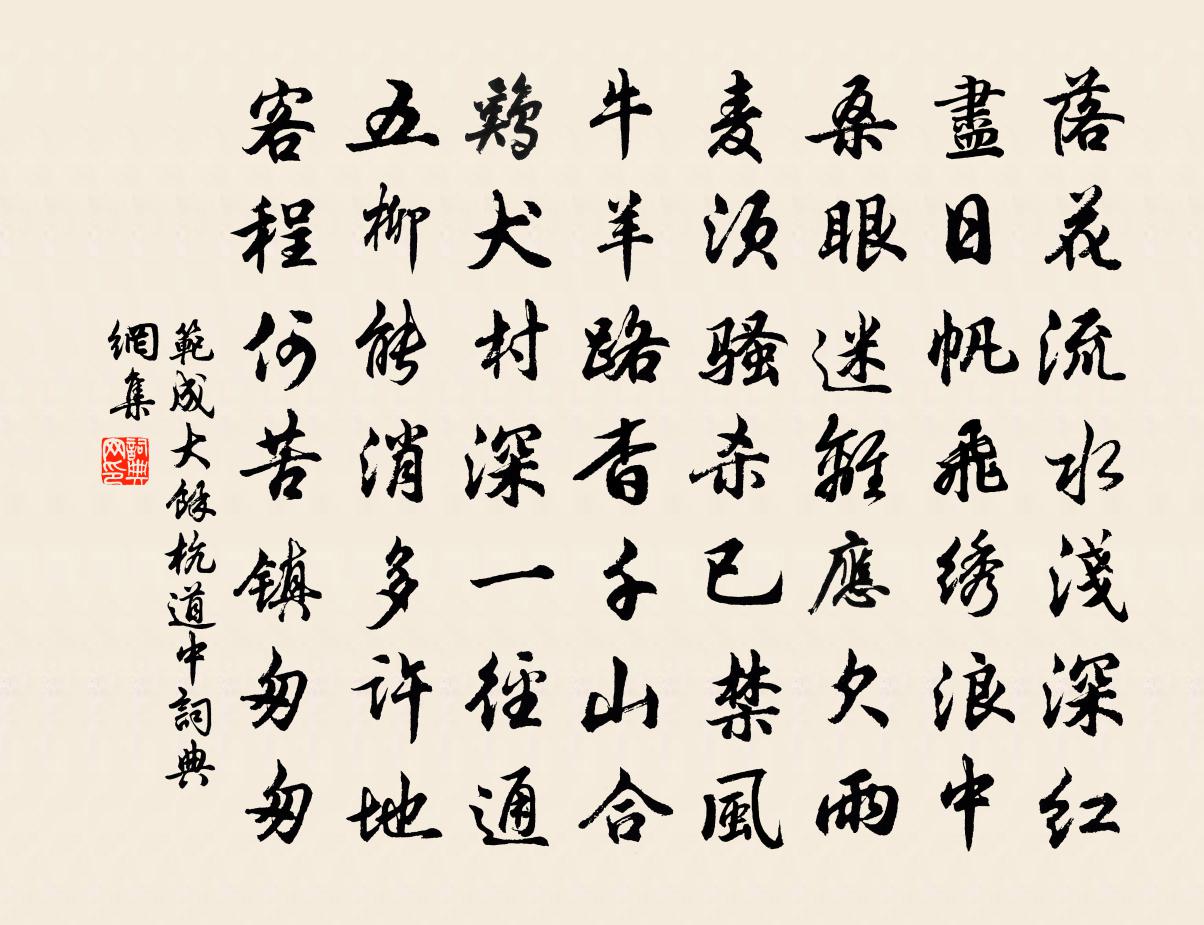 落花流水淺深红
盡日帆飛绣浪中
桑眼迷離應欠雨
麦须骚杀已禁風
牛羊路杳千山合
鷄犬村深一徑通
五柳能消多许地
客程何苦镇匆匆
範成大餘杭道中詞典
網集
詞典
网印